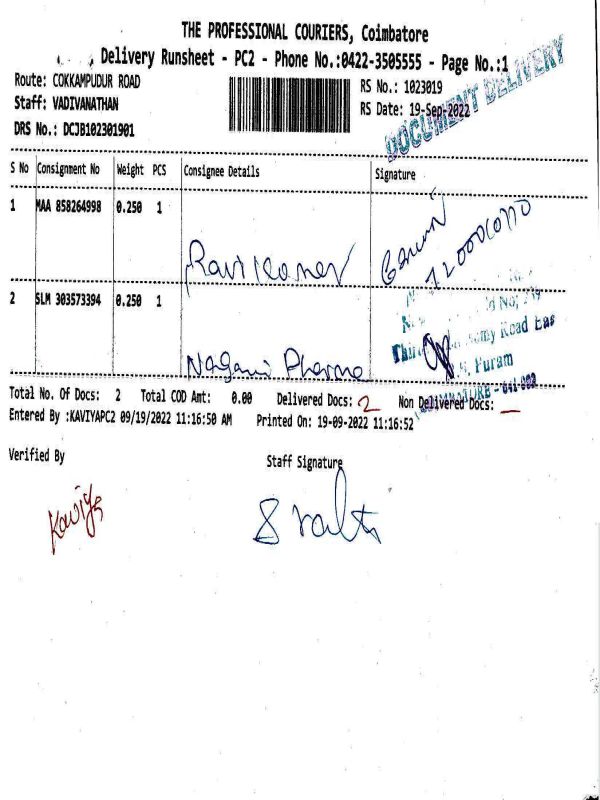 THE PROFESSIONAL COURIERS, Coimbatore
Delivery Runsheet - PC2 - Phone No.:0422-3505555 - Page No.:1
Route: COKKAMPUDUR ROAD
RS No.: 1023019
Staff: VADIVANATHAN
RS Date: 19-Sep-2022
DOCUMENT DELIVERY
DRS No.: DCJB102301901
S No Consignment No Weight PCS Consignee Details Signature
1 MAA 858264998 0.250 1
Ravikumar
2 SLM 303573394 0.250 1
Road Eas
Puram
Pharma
641 002
Total No. Of Docs: 2 Total COD Amt: 0.00 Delivered Docs: 2 Non Delivered Docs: _
Entered By :KAVIYAPC2 09/19/2022 11:16:50 AM Printed On: 19-09-2022 11:16:52
Verified By Staff Signature
Kaviya